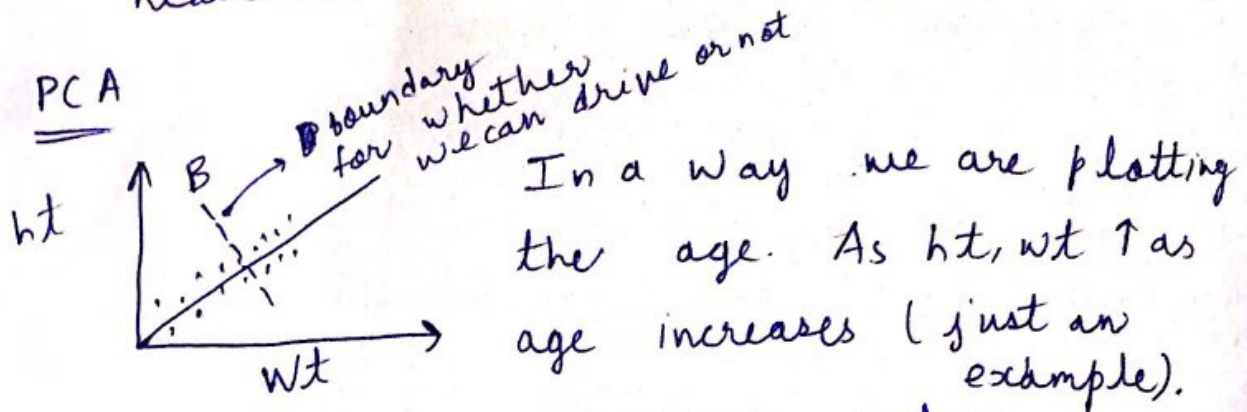 PCA
ht
B
boundary
for whether
we can drive or not
Wt
In a way we are plotting
the age. As ht, wt ↑ as
age increases (just an
example).